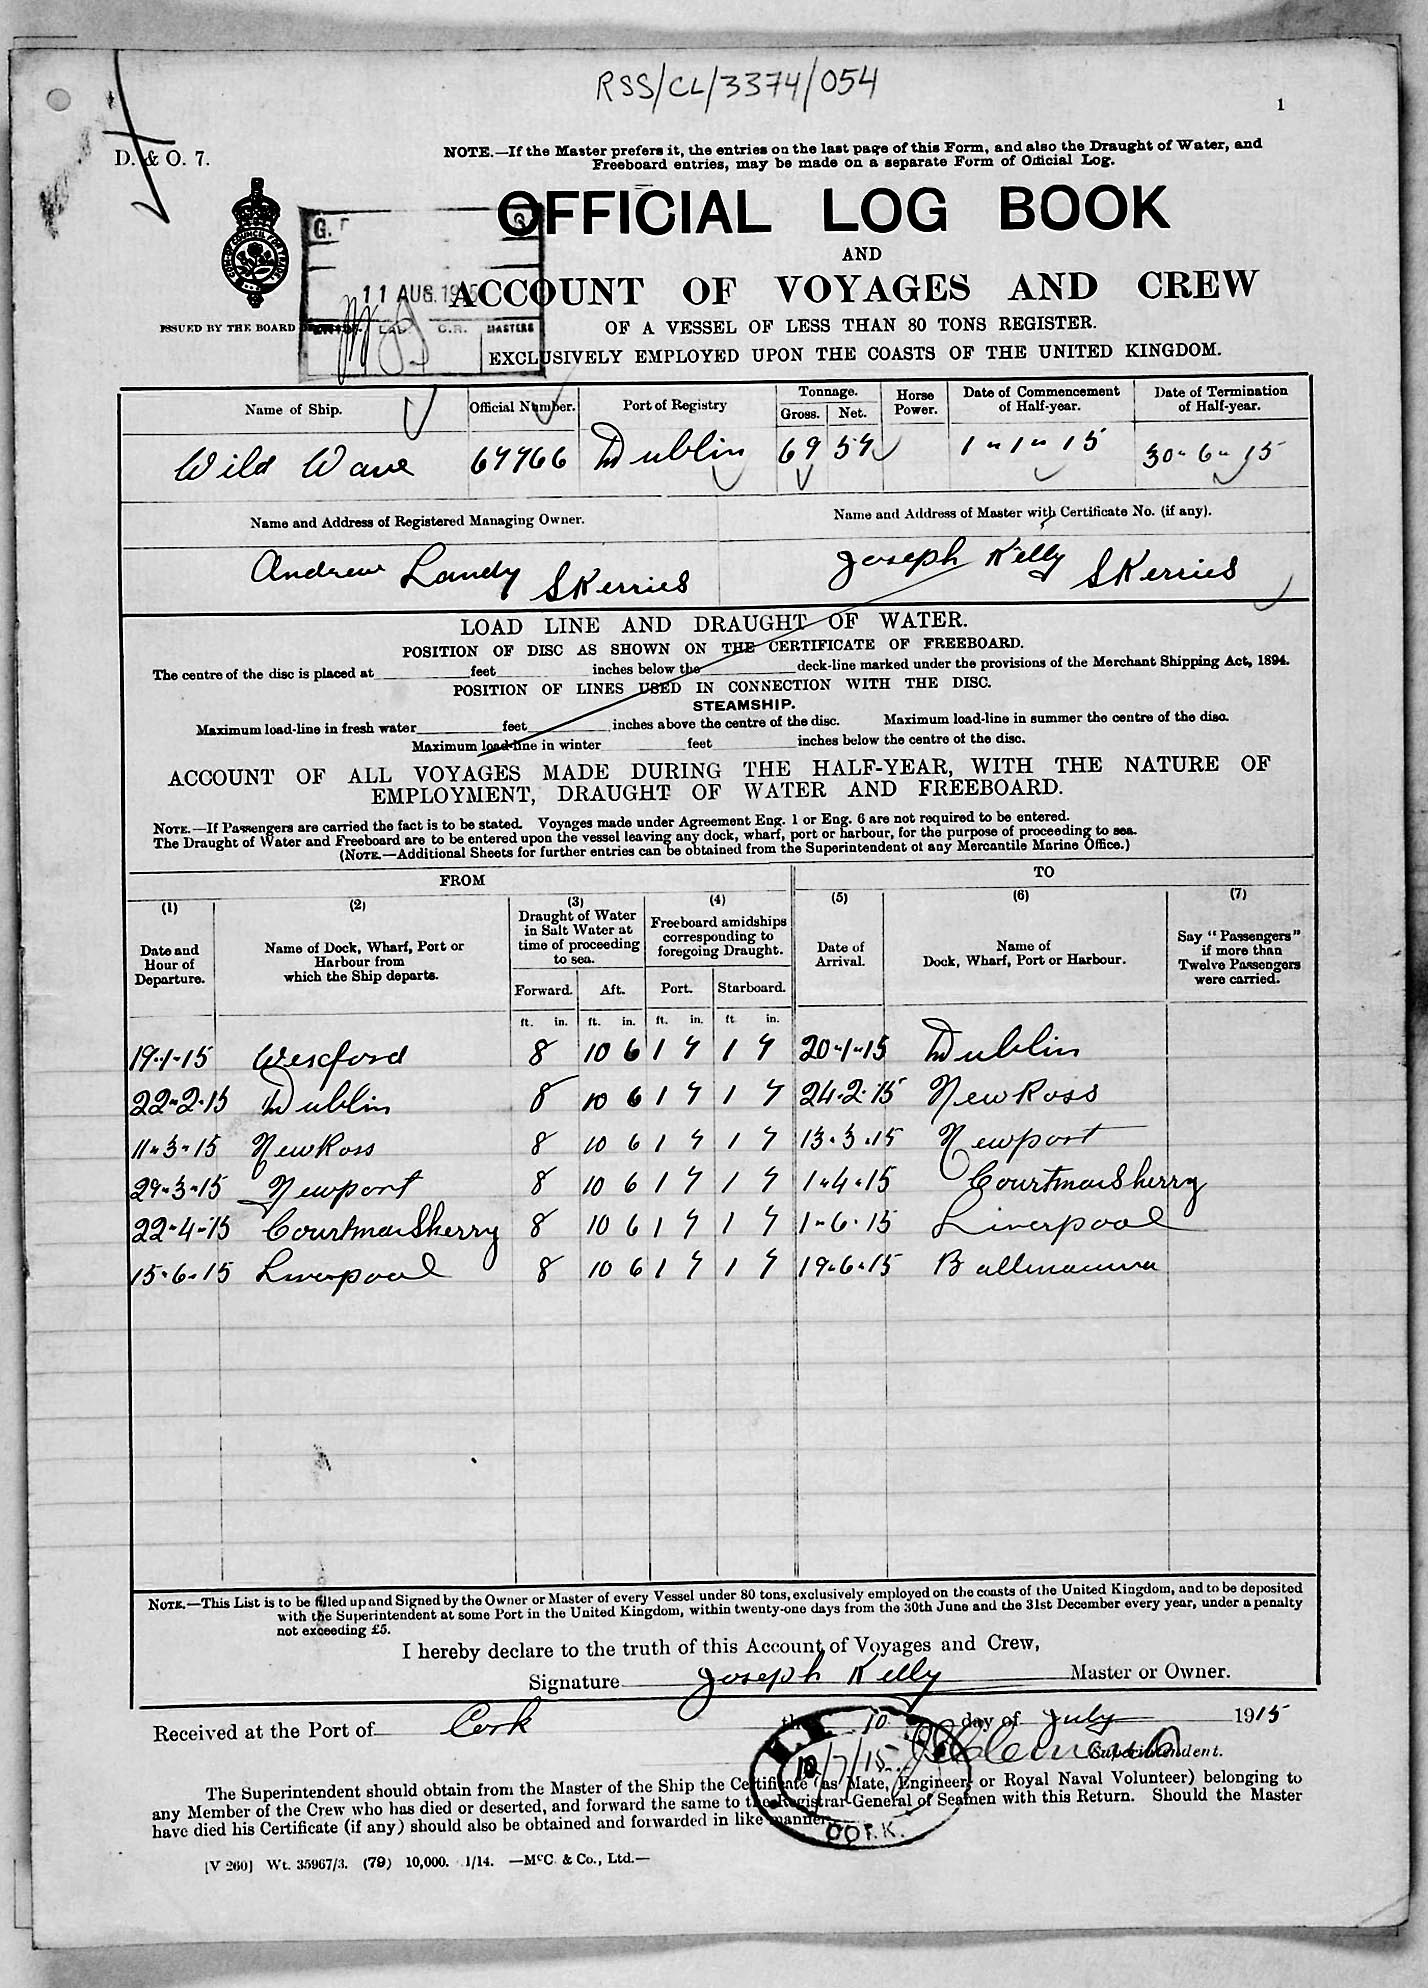 RSS/CL/3374/054
1
D. & O. 7.
NOTE.—If the Master prefers it, the entries on the last page of this Form, and also the Draught of Water, and
Freeboard entries, may be made on a separate Form of Official Log.
OFFICIAL LOG BOOK
AND
11 AUG. 19
ACCOUNT OF VOYAGES AND CREW
ISSUED BY THE BOARD
C.R. MASTERS
OF A VESSEL OF LESS THAN 80 TONS REGISTER.
EXCLUSIVELY EMPLOYED UPON THE COASTS OF THE UNITED KINGDOM.
Name of Ship. Official Number. Port of Registry Tonnage. Gross. Net. Horse Power. Date of Commencement of Half-year. Date of Termination of Half-year.
Wild Wave 67766 Dublin 69 57 1-1-15 30-6-15
Name and Address of Registered Managing Owner. Name and Address of Master with Certificate No. (if any).
Andrew Landy Skerries Joseph Kelly Skerries
LOAD LINE AND DRAUGHT OF WATER.
POSITION OF DISC AS SHOWN ON THE CERTIFICATE OF FREEBOARD.
The centre of the disc is placed at feet inches below the deck-line marked under the provisions of the Merchant Shipping Act, 1894.
POSITION OF LINES USED IN CONNECTION WITH THE DISC.
STEAMSHIP.
Maximum load-line in fresh water feet inches above the centre of the disc. Maximum load-line in summer the centre of the disc.
Maximum load-line in winter feet inches below the centre of the disc.
ACCOUNT OF ALL VOYAGES MADE DURING THE HALF-YEAR, WITH THE NATURE OF
EMPLOYMENT, DRAUGHT OF WATER AND FREEBOARD.
NOTE.—If Passengers are carried the fact is to be stated. Voyages made under Agreement Eng. 1 or Eng. 6 are not required to be entered.
The Draught of Water and Freeboard are to be entered upon the vessel leaving any dock, wharf, port or harbour, for the purpose of proceeding to sea.
(NOTE.—Additional Sheets for further entries can be obtained from the Superintendent of any Mercantile Marine Office.)
FROM TO
(1) (2) (3) (4) (5) (6) (7)
Date and Hour of Departure. Name of Dock, Wharf, Port or Harbour from which the Ship departs. Draught of Water in Salt Water at time of proceeding to sea. Freeboard amidships corresponding to foregoing Draught. Date of Arrival. Name of Dock, Wharf, Port or Harbour. Say "Passengers" if more than Twelve Passengers were carried.
Forward. Aft. Port. Starboard.
ft. in. ft. in. ft. in. ft. in.
19-1-15 Wexford 8 10 6 1 7 1 7 20-1-15 Dublin
22-2-15 Dublin 8 10 6 1 7 1 7 24-2-15 New Ross
11-3-15 New Ross 8 10 6 1 7 1 7 13-3-15 Newport
29-3-15 Newport 8 10 6 1 7 1 7 1-4-15 CourtmacSherry
22-4-15 CourtmacSherry 8 10 6 1 7 1 7 1-6-15 Liverpool
15-6-15 Liverpool 8 10 6 1 7 1 7 19-6-15
NOTE.—This List is to be filled up and Signed by the Owner or Master of every Vessel under 80 tons, exclusively employed on the coasts of the United Kingdom, and to be deposited
with the Superintendent at some Port in the United Kingdom, within twenty-one days from the 30th June and the 31st December every year, under a penalty
not exceeding £5.
I hereby declare to the truth of this Account of Voyages and Crew,
Signature Joseph Kelly Master or Owner.
Received at the Port of Cork the 10 day of July 1915
Superintendent.
10/7/15
CORK.
The Superintendent should obtain from the Master of the Ship the Certificate (as Mate, Engineer, or Royal Naval Volunteer) belonging to
any Member of the Crew who has died or deserted, and forward the same to the Registrar-General of Seamen with this Return. Should the Master
have died his Certificate (if any) should also be obtained and forwarded in like manner.
[V 260] Wt. 35967/3. (79) 10,000. 1/14. —McC. & Co., Ltd.—